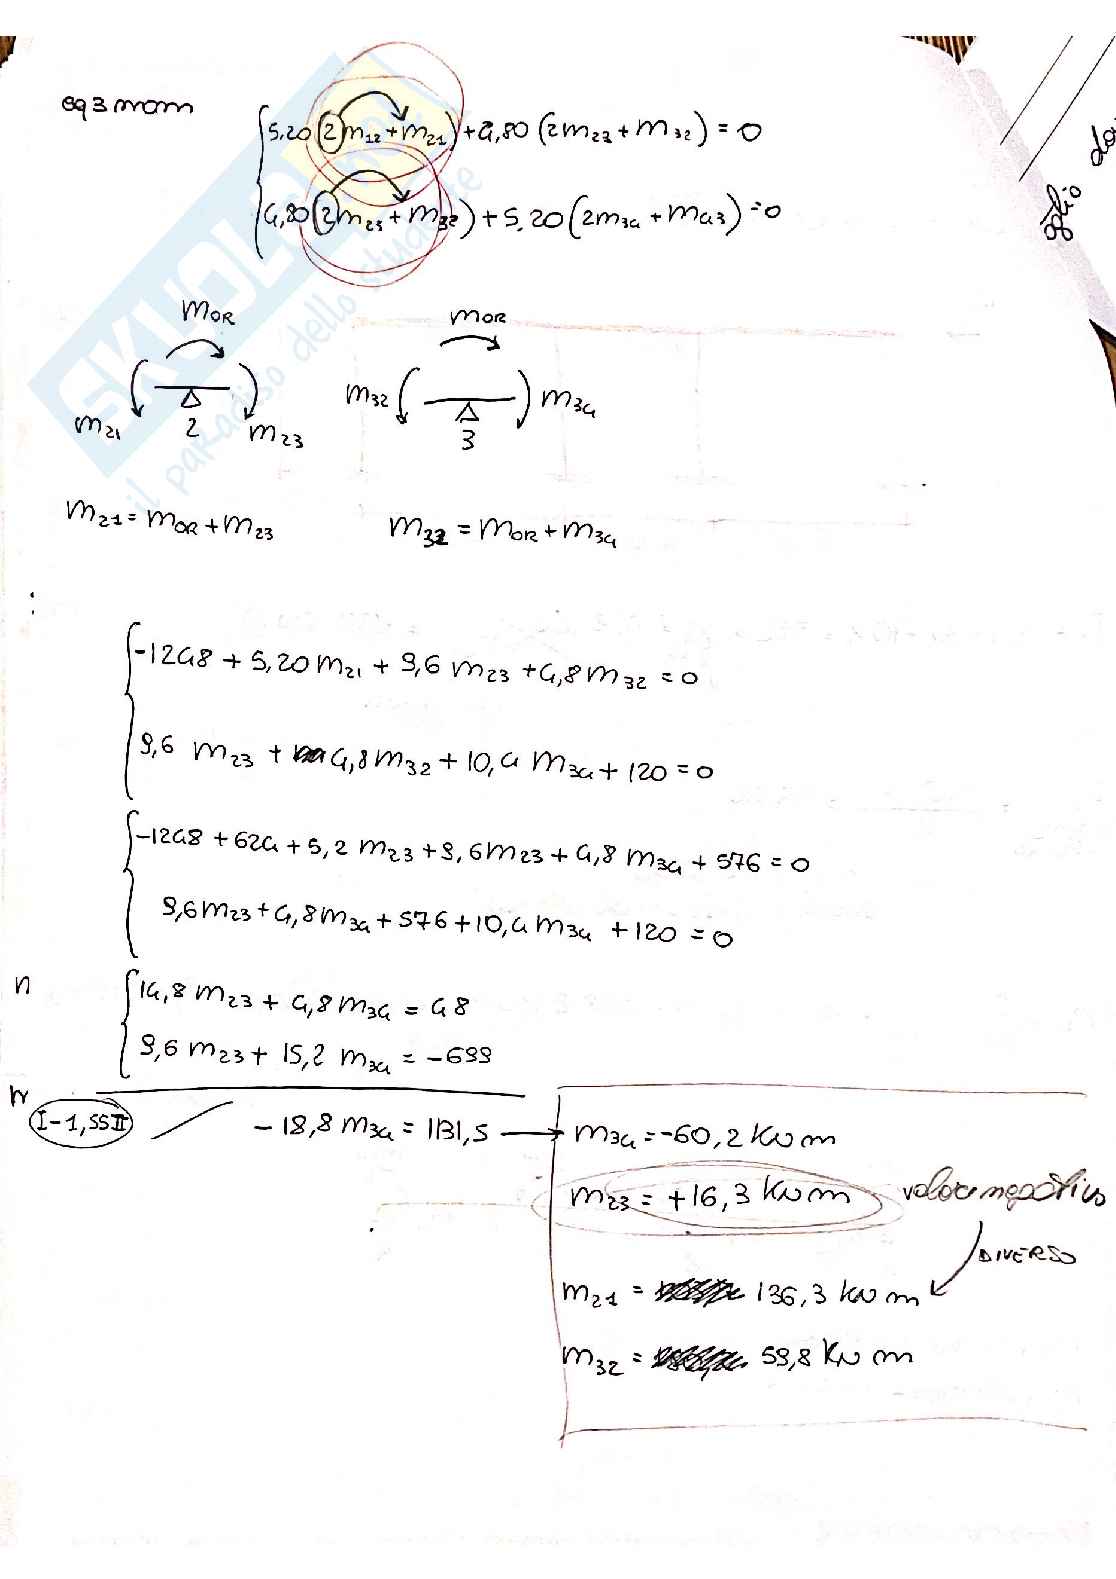 eq 3 mom
5,20 (2 m12 + m21) + 4,80 (2 m23 + m32) = 0
4,80 (2 m23 + m32) + 5,20 (2 m34 + m43) = 0
oglio
MOR MOR
m21 2 m23 m32 3 m34
m21 = mOR + m23 m32 = mOR + m34
-1248 + 5,20 m21 + 9,6 m23 + 4,8 m32 = 0
9,6 m23 + 4,8 m32 + 10,4 m34 + 120 = 0
-1248 + 624 + 5,2 m23 + 9,6 m23 + 4,8 m34 + 576 = 0
9,6 m23 + 4,8 m34 + 576 + 10,4 m34 + 120 = 0
n
14,8 m23 + 4,8 m34 = 48
9,6 m23 + 15,2 m34 = -699
I - 1,55 II - 18,8 m34 = 1131,5 → m34 = -60,2 KN m
m23 = +16,3 KN m valore negativo
DIVERSO
m21 = 136,3 KN m
m32 = 59,8 KN m
SKUOLA.net
il paradiso dello studente